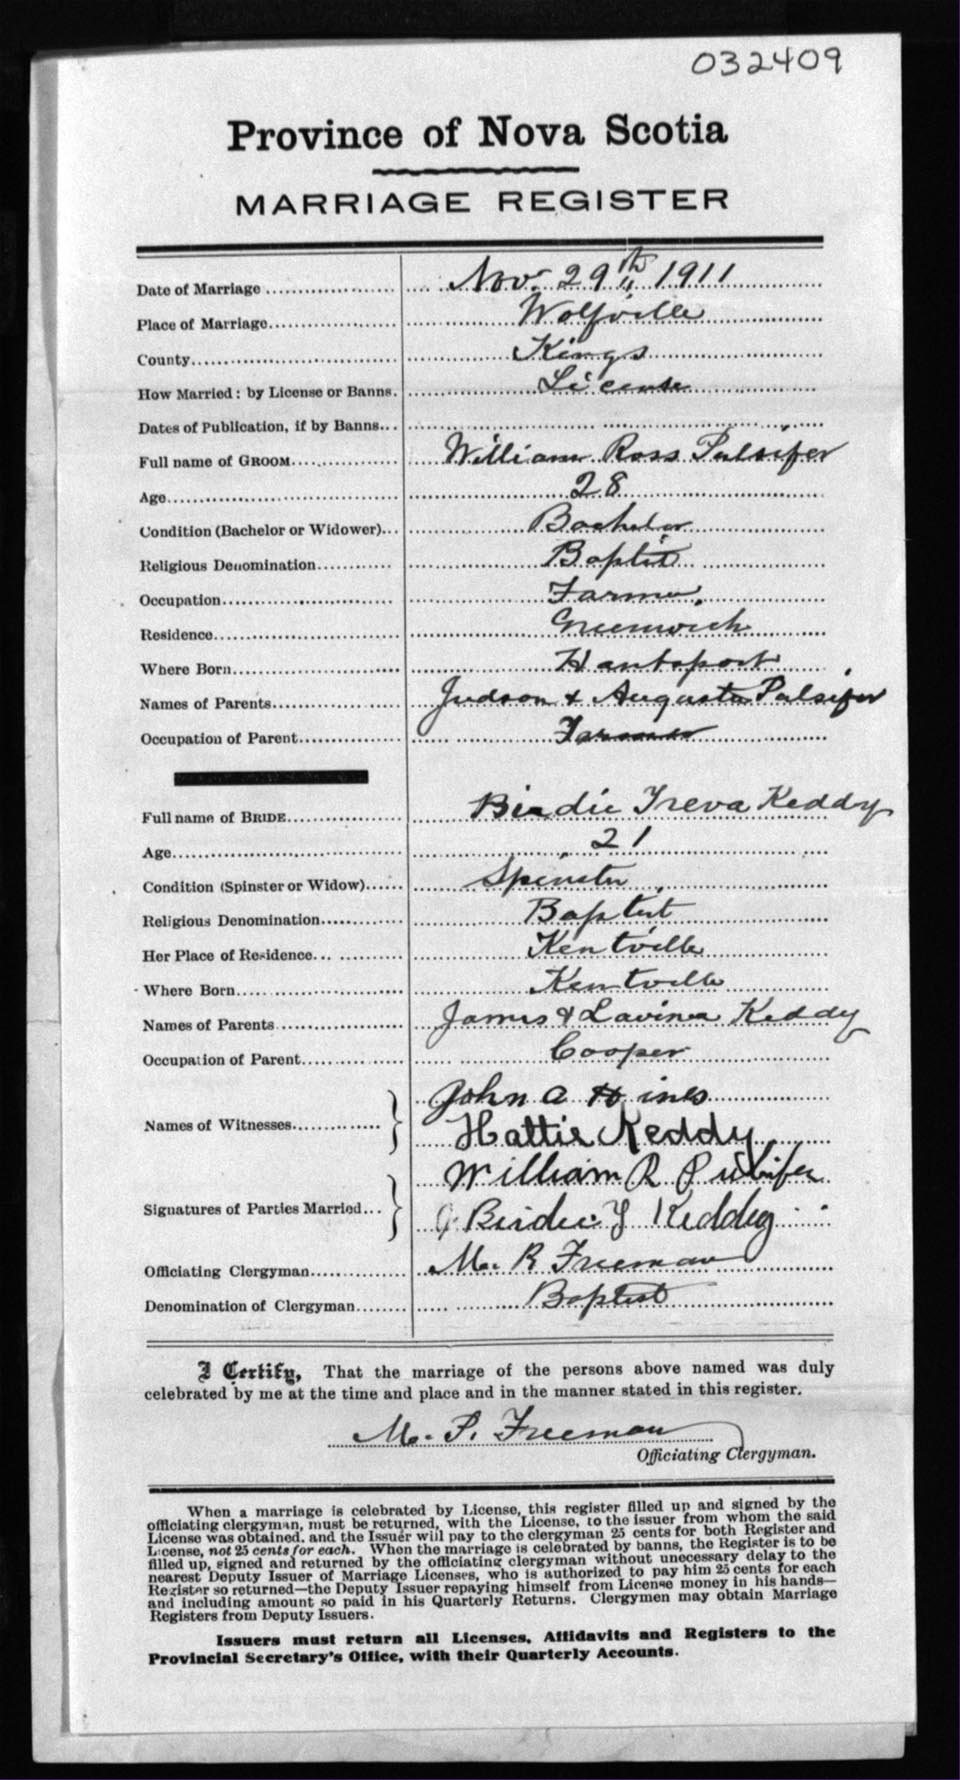 032409
Province of Nova Scotia
MARRIAGE REGISTER
Date of Marriage Nov. 29th 1911
Place of Marriage Wolfville
County Kings
How Married: by License or Banns. License
Dates of Publication, if by Banns
Full name of GROOM William Ross Pulsifer
Age 28
Condition (Bachelor or Widower) Bachelor
Religious Denomination Baptist
Occupation Farmer
Residence Greenwich
Where Born Hantsport
Names of Parents Judson & Augusta Pulsifer
Occupation of Parent Farmer
Full name of BRIDE Birdie Treva Keddy
Age 21
Condition (Spinster or Widow) Spinster
Religious Denomination Baptist
Her Place of Residence Kentville
Where Born Kentville
Names of Parents James & Lavinia Keddy
Occupation of Parent Cooper
Names of Witnesses John A Hines
Hattie Keddy
Signatures of Parties Married William R Pulsifer
Birdie T Keddy
Officiating Clergyman M. P. Freeman
Denomination of Clergyman Baptist
I Certify, That the marriage of the persons above named was duly
celebrated by me at the time and place and in the manner stated in this register.
M. P. Freeman
Officiating Clergyman.
When a marriage is celebrated by License, this register filled up and signed by the
officiating clergyman, must be returned, with the License, to the issuer from whom the said
License was obtained, and the Issuer will pay to the clergyman 25 cents for both Register and
License, not 25 cents for each. When the marriage is celebrated by banns, the Register is to be
filled up, signed and returned by the officiating clergyman without unecessary delay to the
nearest Deputy Issuer of Marriage Licenses, who is authorized to pay him 25 cents for each
Register so returned—the Deputy Issuer repaying himself from License money in his hands—
and including amount so paid in his Quarterly Returns. Clergymen may obtain Marriage
Registers from Deputy Issuers.
Issuers must return all Licenses, Affidavits and Registers to the
Provincial Secretary's Office, with their Quarterly Accounts.